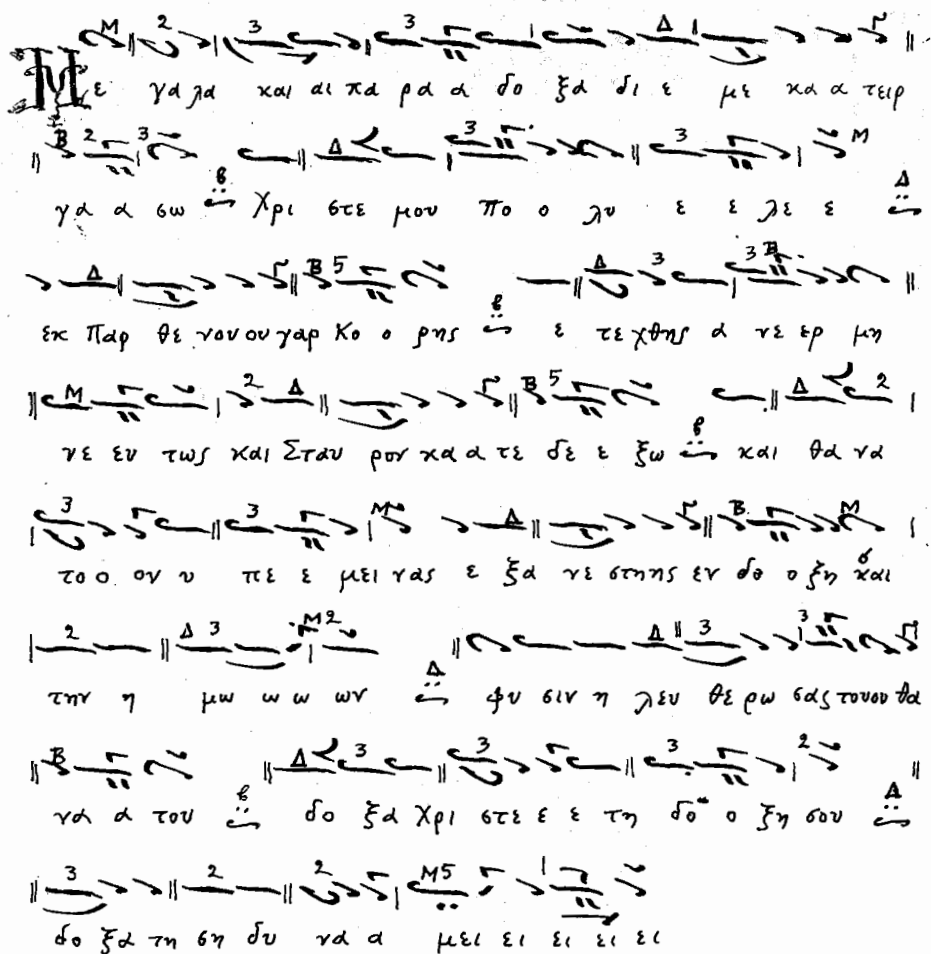 Με γα λα και αι πα ρα α δο ξα δι ε με κα α τειρ
γα α σω Χρι στε μου πο ο λυ ε ε λε ε
εκ Παρ θε νου ου γαρ Κο ο ρης ε τε χθης α νε ερ μη
νε ευ τως και Σταυ ρον κα α τε δε ε ξω και θα να
το ο ον υ πε ε μει νας ε ξα νε στη ης εν δο ο ξη και
την η μω ω ω ων φυ σιν η λευ θε ρω σας του ου θα
να α του δο ξα Χρι στε ε ε τη δο ο ξη σου
δο ξα τη ση δυ να α μει ει ει ει ει